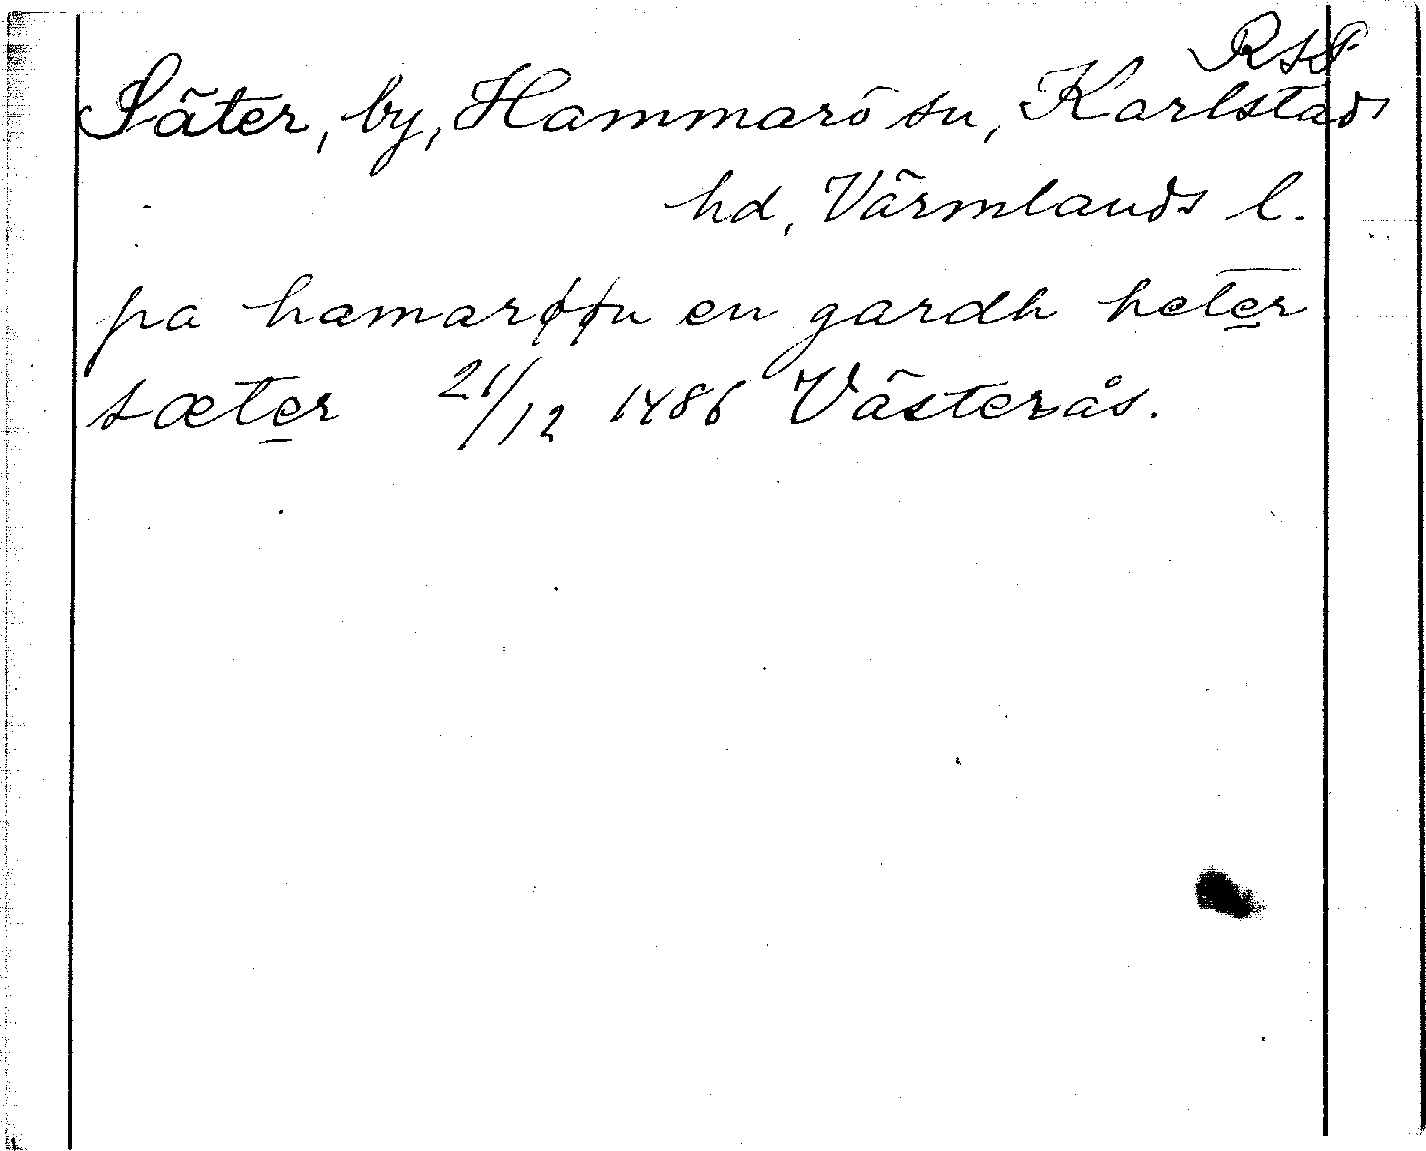 Säter, by, Hammarö sn, Karlstads
hd, Värmlands l.
pa hamarøøn en gardh heter
sæter 21/12 1486 Västerås.